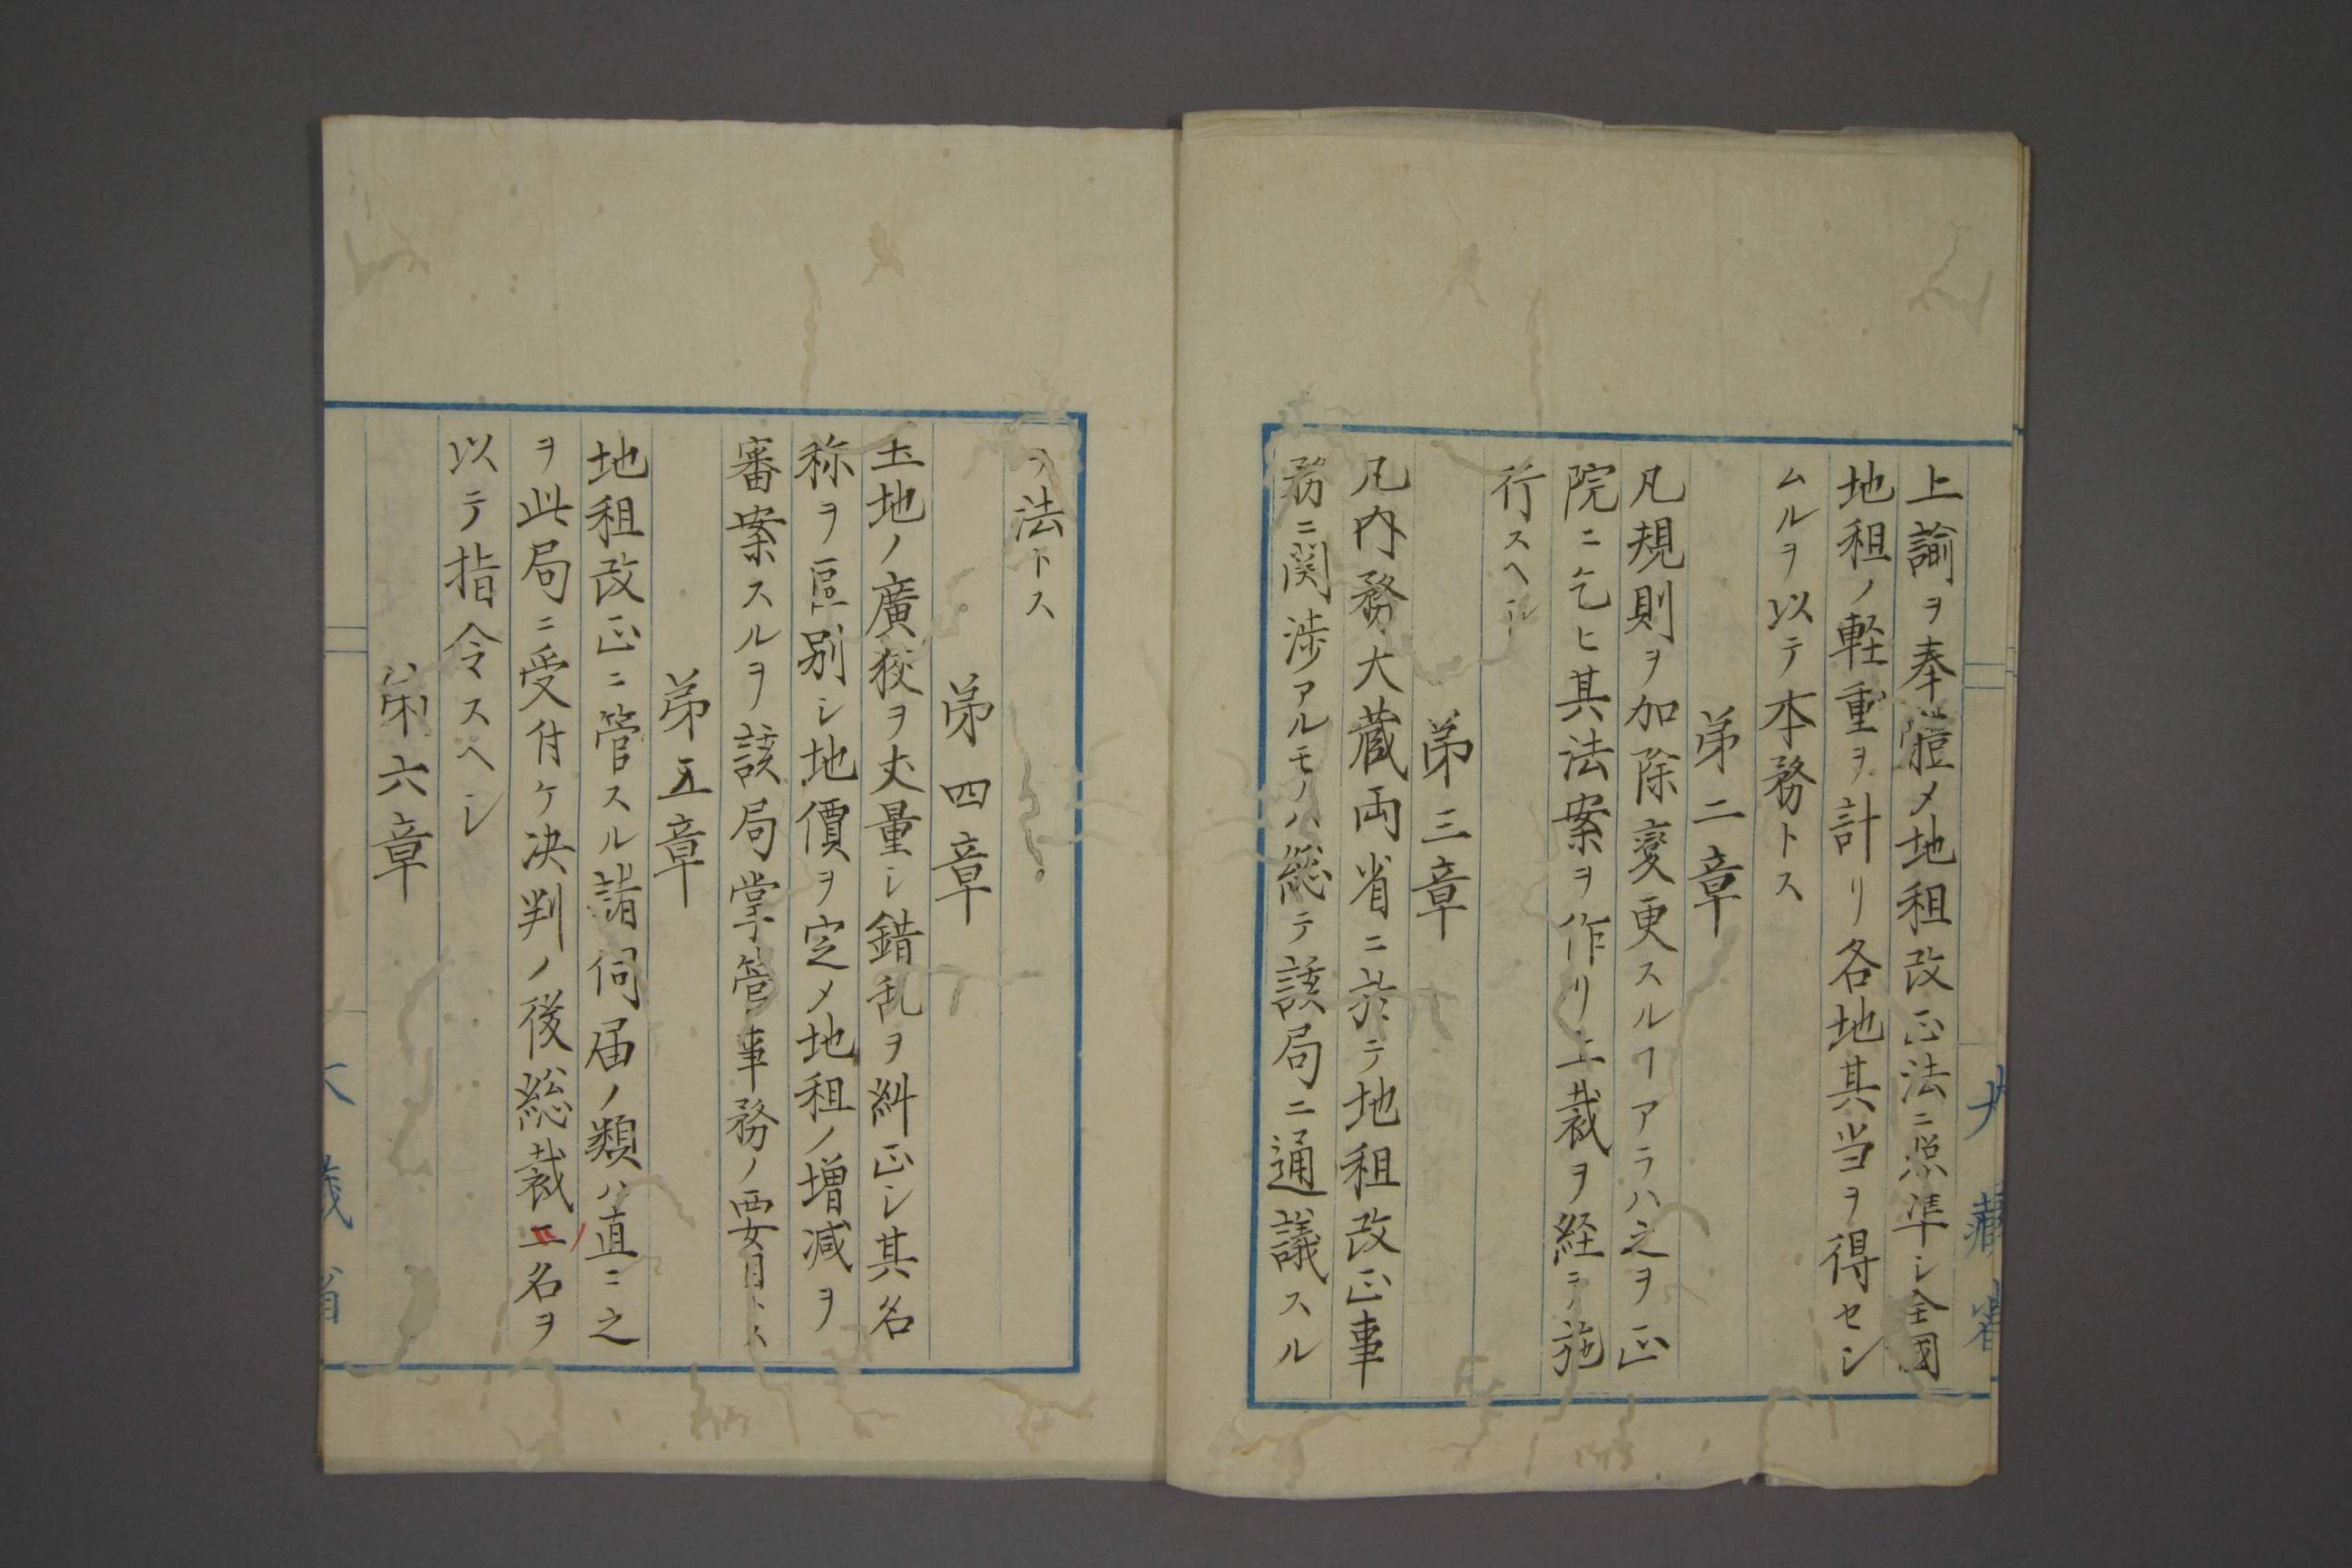 上諭ヲ奉體メ地租改正法ニ照準シ全國
地租ノ軽重ヲ計リ各地其当ヲ得セシ
ムルヲ以テ本務トス
第二章
凡規則ヲ加除変更スルヿアラハ之ヲ正
院ニ乞ヒ其法案ヲ作リ上裁ヲ経テ施
行スヘ
第三章
凡内務大蔵両省ニ於テ地租改正事
務ニ関渉アルモノハ総テ該局ニ通議スル
ヲ法トス
第四章
土地ノ廣狹ヲ丈量シ錯乱ヲ糾正シ其名
称ヲ區別シ地價ヲ定メ地租ノ増減ヲ
審案スルヲ該局掌管事務ノ要目トス
第五章
地租改正ニ管スル請伺届ノ類ハ直ニ之
ヲ此局ニ受付ケ决判ノ後総裁ニ名ヲ
以テ指令スヘシ
第六章
大藏省